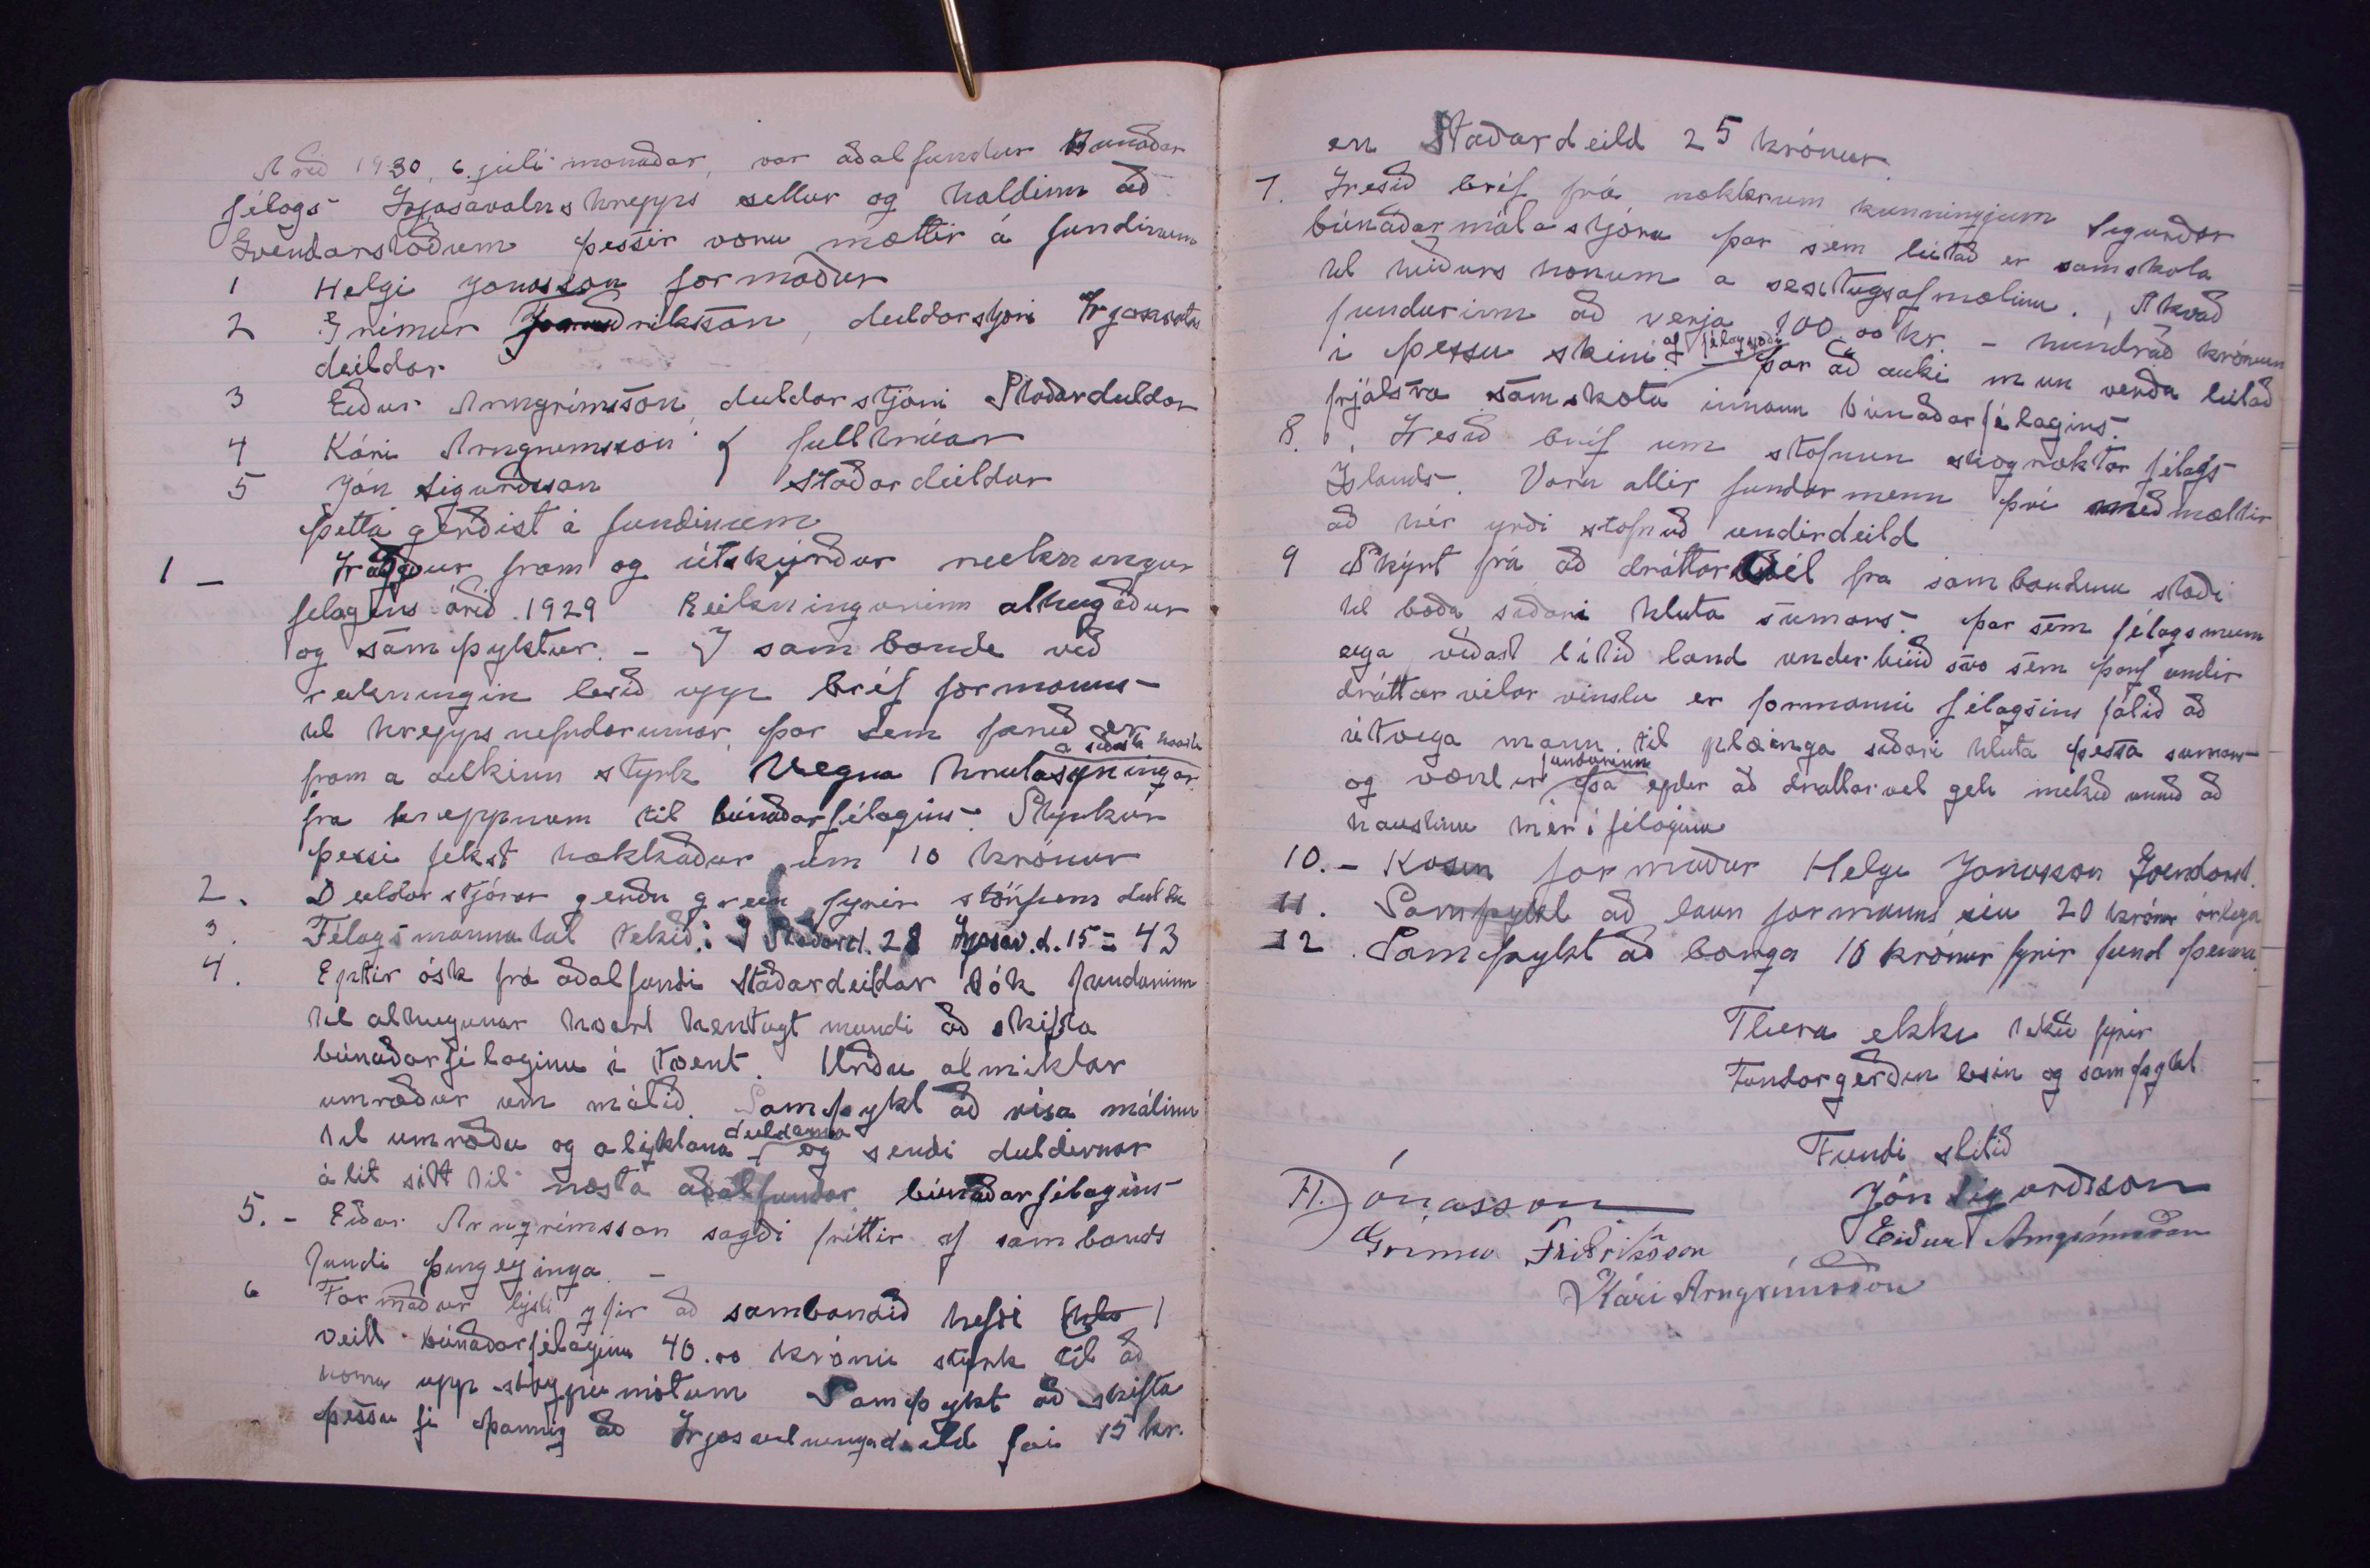 Árið 1930, 6. júlí mánaðar, var aðalfundur Búnaðar
félags Ljósavatnshrepps settur og haldinn að
Gvendarstöðum þessir voru mættir á fundinum
1 Helgi Jónasson formaður
2 Grímur Friðriksson, deildarstjóri Ljósavatns
deildar
3 Eiður Arngrímsson deildarstjóri Staðardeildar
4 Kári Arngrímsson { fulltrúar
5 Jón Sigurðsson Staðardeildar
Þetta gerðist á fundinum
1 – Lagður fram og útskýrður reikningur
félagsins árið 1929 Reikningurinn athugaður
og samþyktur. – Í sambandi við
reikningin lesið upp bréf formanns
til hreppsnefndarinnar, þar sem farið er
á síðasta hausti
fram á aukinn styrk vegna hrútasýningar
frá hreppnum til búnaðarfélagsins. Styrkur
þessi fekst hækkaður um 10 krónur
2. Deildarstjórar gerðu grein fyrir störfum deilda
3. Félagsmannatal tekið: Í Staðard. 28 Ljósav.d. 15 = 43
4. Eptir ósk frá aðalfundi Staðardeildar tók fundurinn
til athugunar hvort hentugt mundi að skifta
búnaðarfélaginu í tvent. Urðu allmiklar
umræður um málið. Samþykt að vísa málinu
deildanna
til umræðu og ályktana og sendi deildirnar
álit sitt til næsta aðalfundar búnaðarfélagsins
5. – Eiður Arngrímsson sagði fréttir af sambands
fundi þingeyinga. –
6 Formaður lýsti yfir að sambandið hefði
veitt búnaðarfélaginu 40.00 króna styrk til að
koma upp steypumótum Samþykt að skifta
þessu fé þannig að Ljósvetningadeild fái 15 kr.
en Staðardeild 25 krónur.
7. Lesið bréf frá nokkrum kunningjum Sigurðar
búnaðarmálastjóra þar sem leitað er samskota
til heiðurs honum á sextugsafmælinu. Ákvað
fundurinn að verja 100.00 kr. – hundrað krónum
af félagssjóði
í þessu skini. – Þar að auki mun verða leitað
frjálsra samskota innan búnaðarfélagsins.
8. Lesið bréf um stofnun skógræktar félags
Íslands. Voru allir fundarmenn því meðmæltir
að hér yrði stofnuð undirdeild
9 Skýrt frá að dráttarvél frá sambandinu stæði
til boða síðari hluta sumars. Þar sem félagsmenn
eiga víðast lítið land undirbúið svo sem þarf undir
dráttarvélar vinslu er formanni félagsins falið að
útvega mann til plæinga síðari hluta þessa sumars
fundurinn
og væntir þá eptir að dráttarvél geti mikið unnið að
haustinu hér í félaginu
10. – Kosin formaður Helgi Jónasson Gvendarst.
11. Samþykt að laun formanns séu 20 krónur árlega
12. Samþykt að borga 10 krónur fyrir fund þenna.
Fleira ekki tekið fyrir
Fundargerðin lesin og samþykt
Fundi slitið
H. Jónasson Jón Sigurðsson
Grímur Friðriksson Eiður Arngrímsson
Kári Arngrímsson